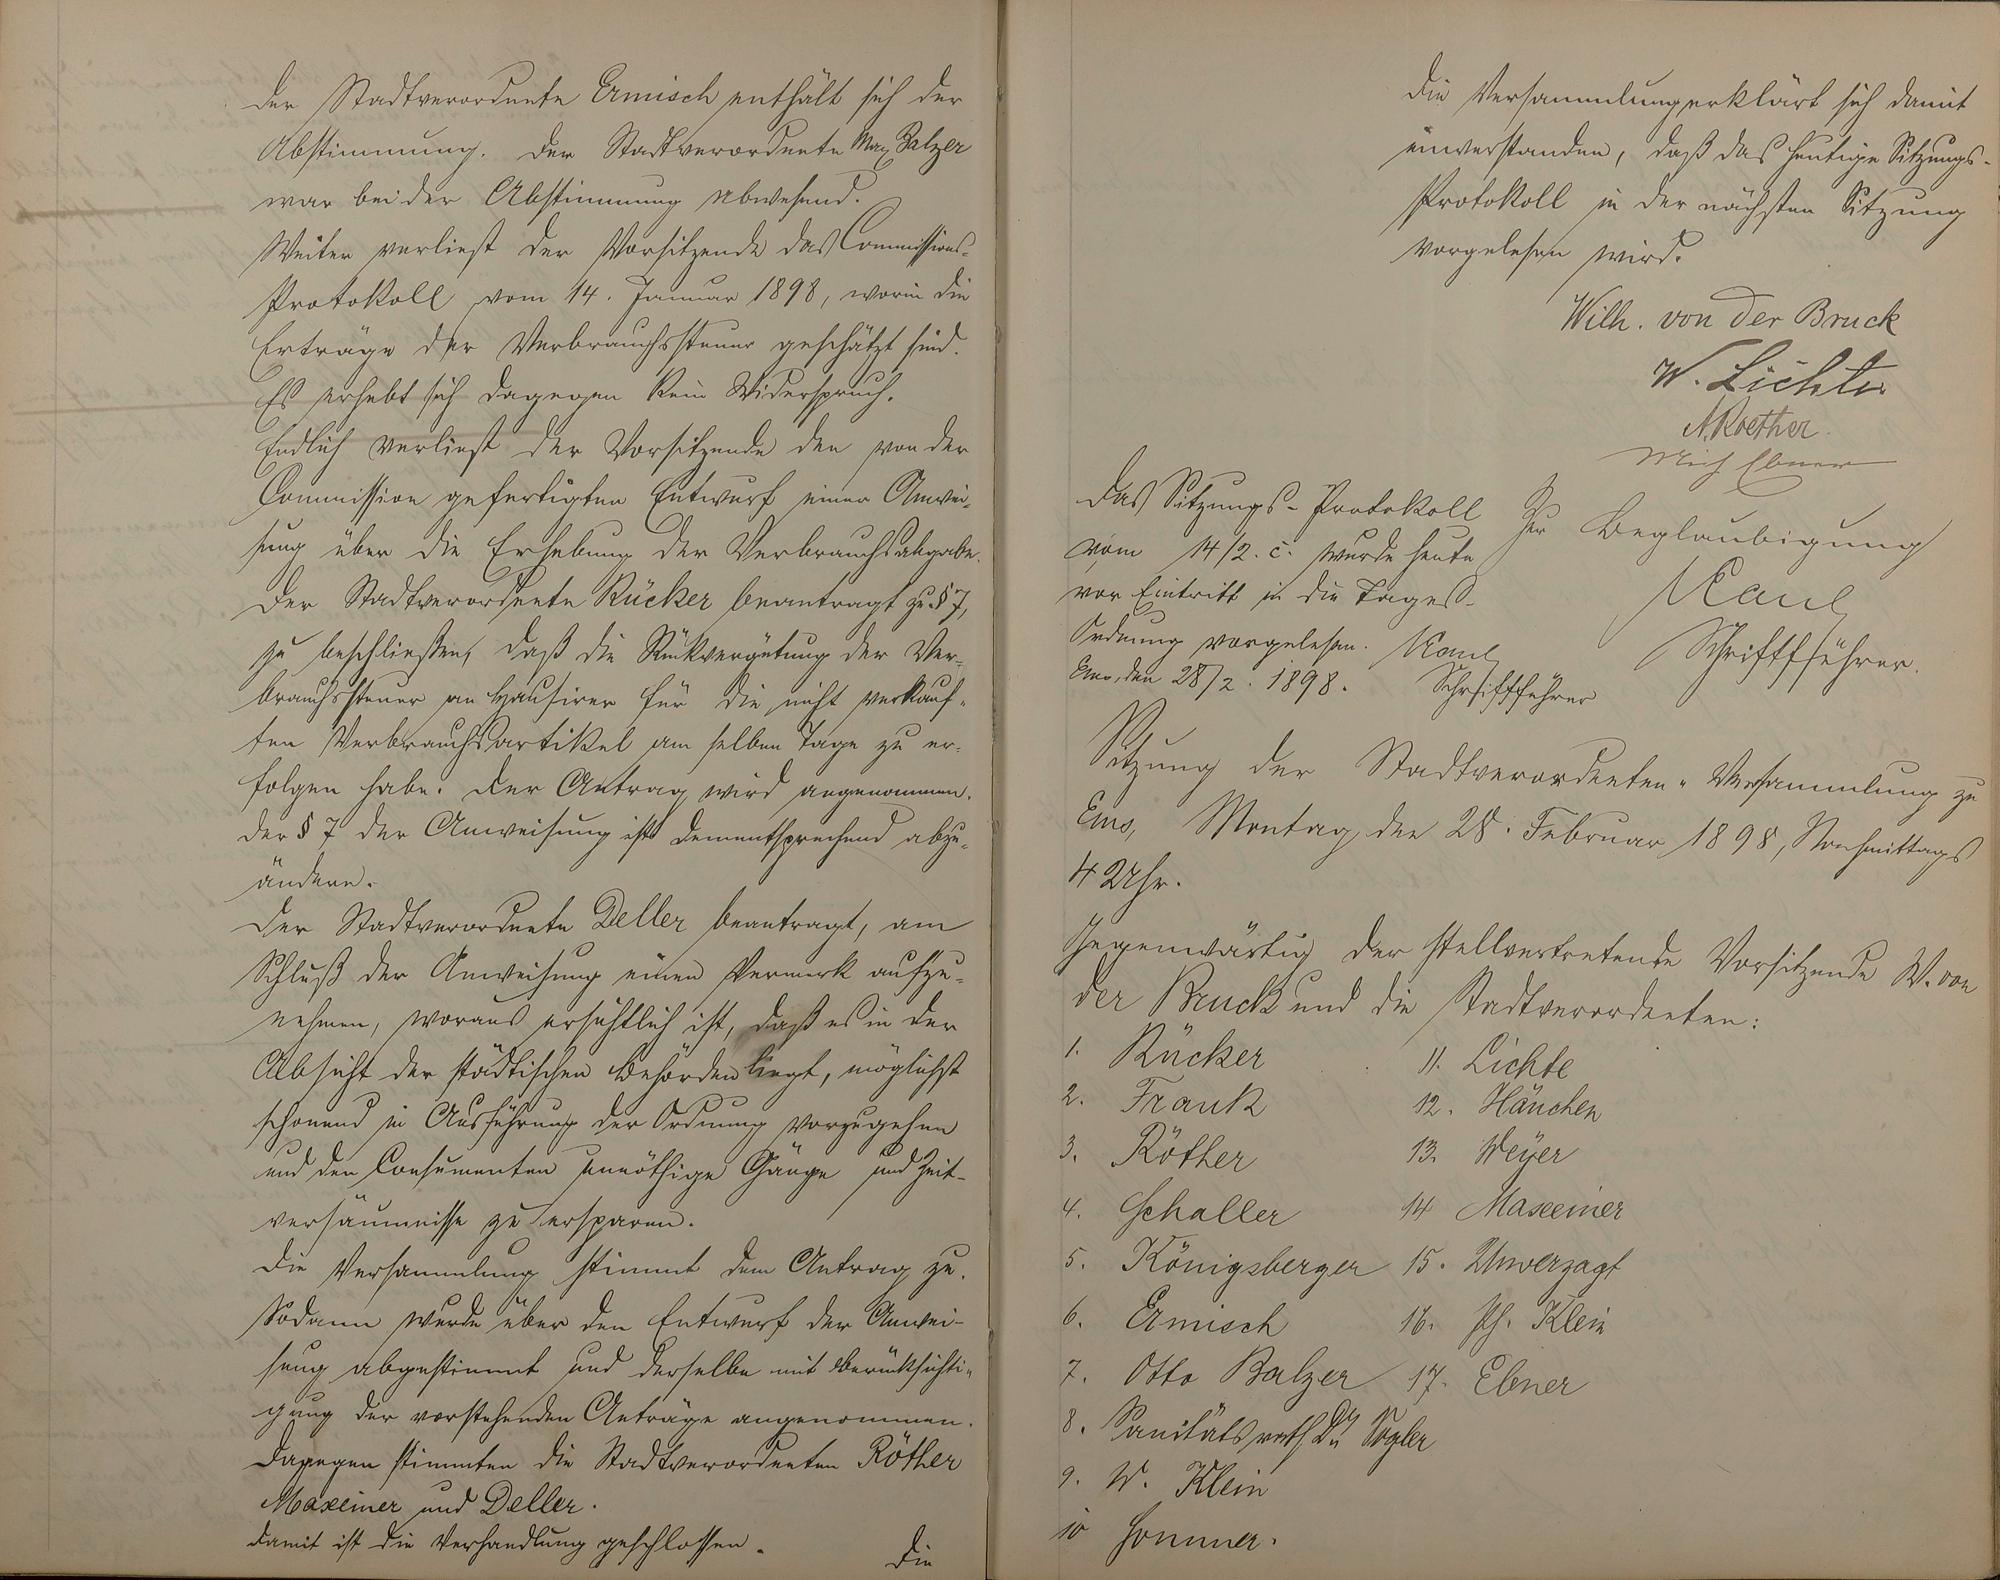 Der Stadtverordnete Ermisch enthält sich der
Abstimmung. Der Stadtverordnete Max Balzer
war bei der Abstimmung abwesend.
Weiter verliest der Vorsitzende das Commissions-
Protokoll vom 14. Januar 1898, worin die
Erträge der Verbrauchssteuer geschätzt sind.
Es erhebt sich dagegen kein Widerspruch.
Endlich verliest der Vorsitzende den von der
Commission gefertigten Entwurf einer Anwei-
sung über die Erhebung der Verbrauchsabgabe.
Der Stadtverordnete Rücker beantragt zu § 7,
zu beschließen, daß die Rückvergütung der Ver-
brauchssteuer an Hausirer für die nicht verkauf-
ten Verbrauchsartikel am selben Tage zu er-
folgen habe. Der Antrag wird angenommen.
Der § 7 der Anweisung ist dementsprechend abzu-
ändern.
Der Stadtverordnete Deller beantragt, am
Schluß der Anweisung einen Vermerk aufzu-
nehmen, woraus ersichtlich ist, daß es in der
Absicht der städtischen Behörden liegt, möglichst
schonend in Ausführung der Ordnung vorzugehen
und den Consumenten unnöthige Gänge und Zeit-
versäumnisse zu ersparen.
Die Versammlung stimmt dem Antrag zu.
Sodann wurde über den Entwurf der Anwei-
sung abgestimmt und derselbe mit Berücksichti-
gung der vorstehenden Anträge angenommen.
Dagegen stimmten die Stadtverordneten Röther
Maxeiner und Deller.
Damit ist die Verhandlung geschlossen.
Die
Die Versammlung erklärt sich damit
einverstanden, daß das heutige Sitzungs-
Protokoll in der nächsten Sitzung
vorgelesen wird.
Wilh. von der Bruck
W. Lichte
A. Roether
Mich Ebner
Das Sitzungs-Protokoll
vom 14/2. c. wurde heute
vor Eintritt in die Tages-
Ordnung vorgelesen. Kaul
Ems, den 28/2. 1898. Schriftführer
Zur Beglaubigung
Kaul
Schriftführer.
Sitzung der Stadtverordneten-Versammlung zu
Ems, Montag, den 28. Februar 1898, Nachmittags
4 Uhr.
Gegenwärtig der stellvertretende Vorsitzende W. von
der Bruck und die Stadtverordneten:
1. Rücker
2. Frank
3. Röther
4. Schaller
5. Königsberger
6. Ermisch
7. Otto Balzer
8. Sanitätsrath Dr. Vogler
9. W. Klein
10 Sommer.
11. Lichte
12. Hänchen
13. Weyer
14 Maxeiner
15. Unverzagt
16. Ph. Klein
17. Ebner